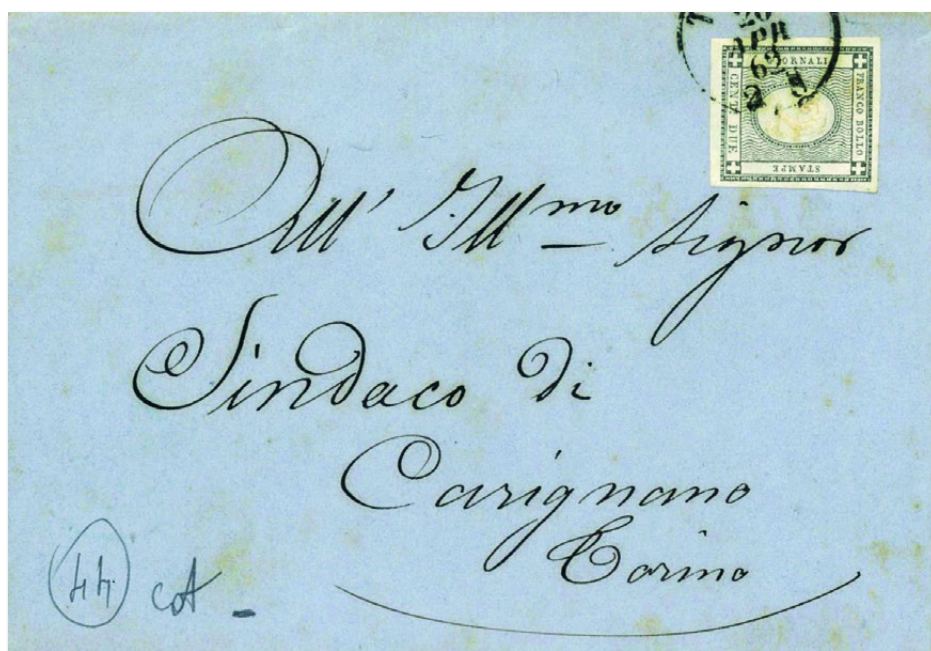 20
APR
62
2
GIORNALI
FRANCO BOLLO
CENT. DUE
STAMPE
All' Ill.mo Signor
Sindaco di
Carignano
Torino
44
cot